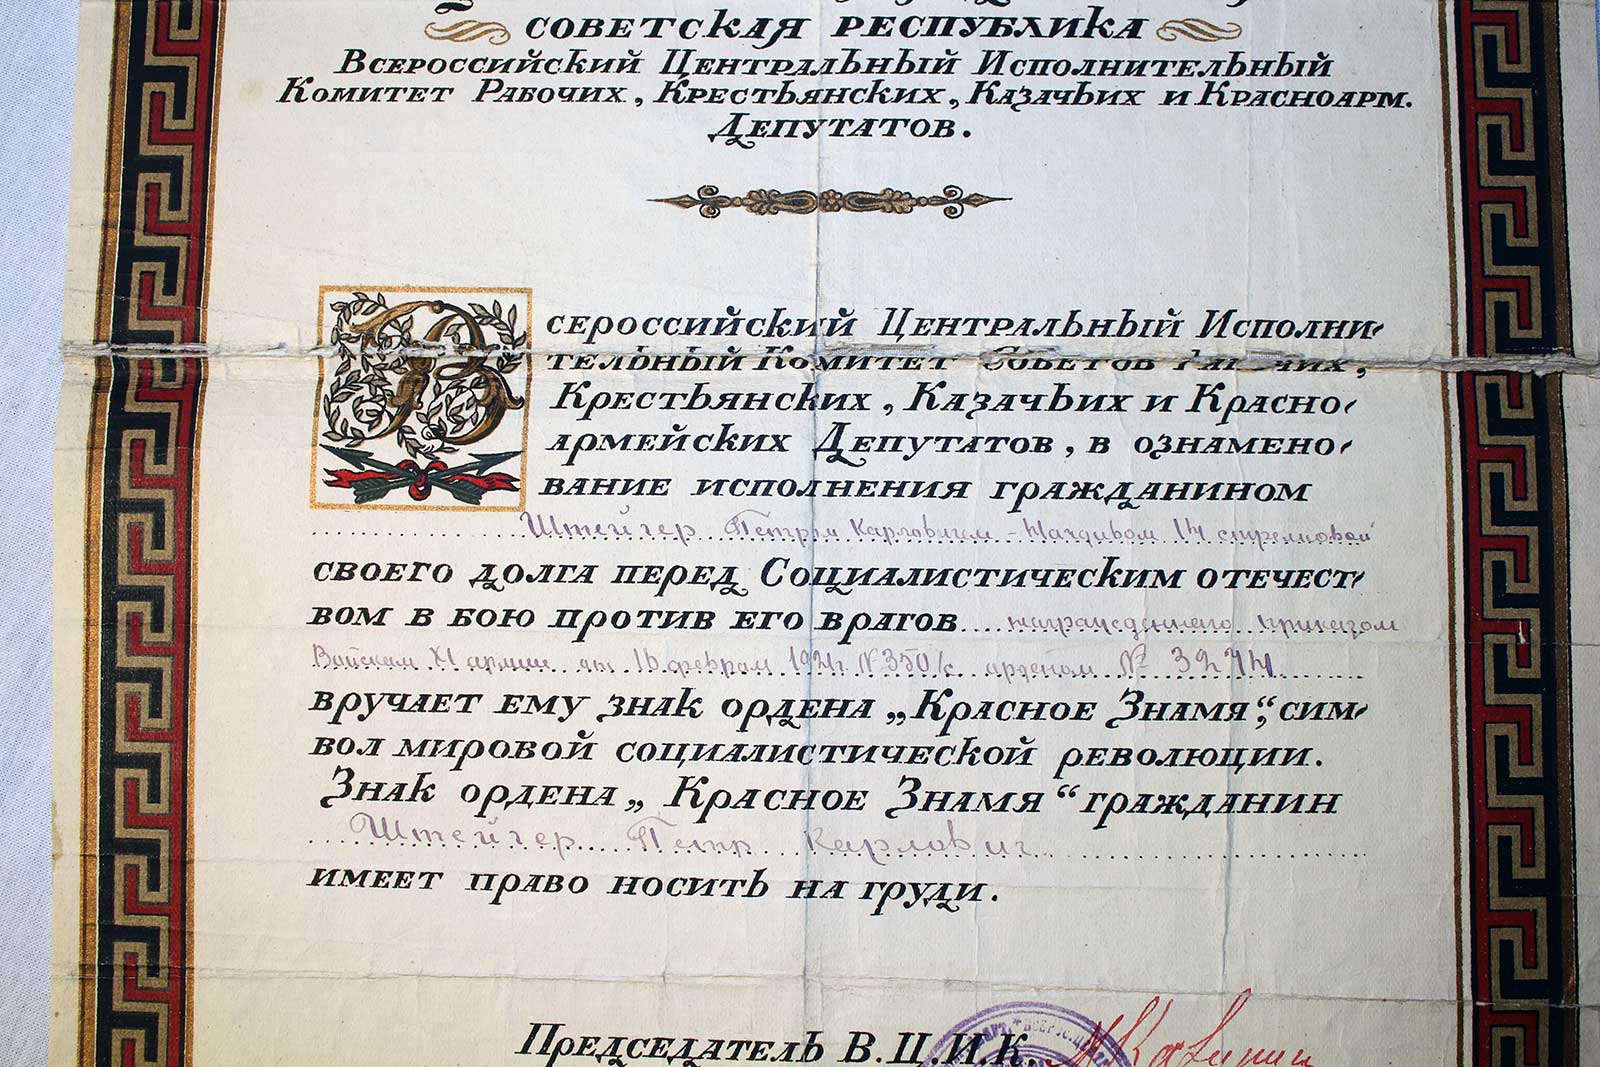 СОВЕТСКАЯ РЕСПУБЛИКА
Всероссийский Центральный Исполнительный
Комитет Рабочих, Крестьянских, Казачьих и Красноарм.
Депутатов.
Всероссийский Центральный Исполни-
тельный Комитет Советов Рабочих,
Крестьянских, Казачьих и Красно-
армейских Депутатов, в ознамено-
вание исполнения гражданином
Штейгер Петром Карловичем - Начдивом 14 стрелковой
своего долга перед Социалистическим отечест-
вом в бою против его врагов награжденного приказом
Войскам XI армии от 16 февраля 1921 г. № 350/к орденом №
вручает ему знак ордена „Красное Знамя“, сим-
вол мировой социалистической революции.
Знак ордена „Красное Знамя“ гражданин
Штейгер Петр Карлович
имеет право носить на груди.
Председатель В.Ц.И.К. М Калинин